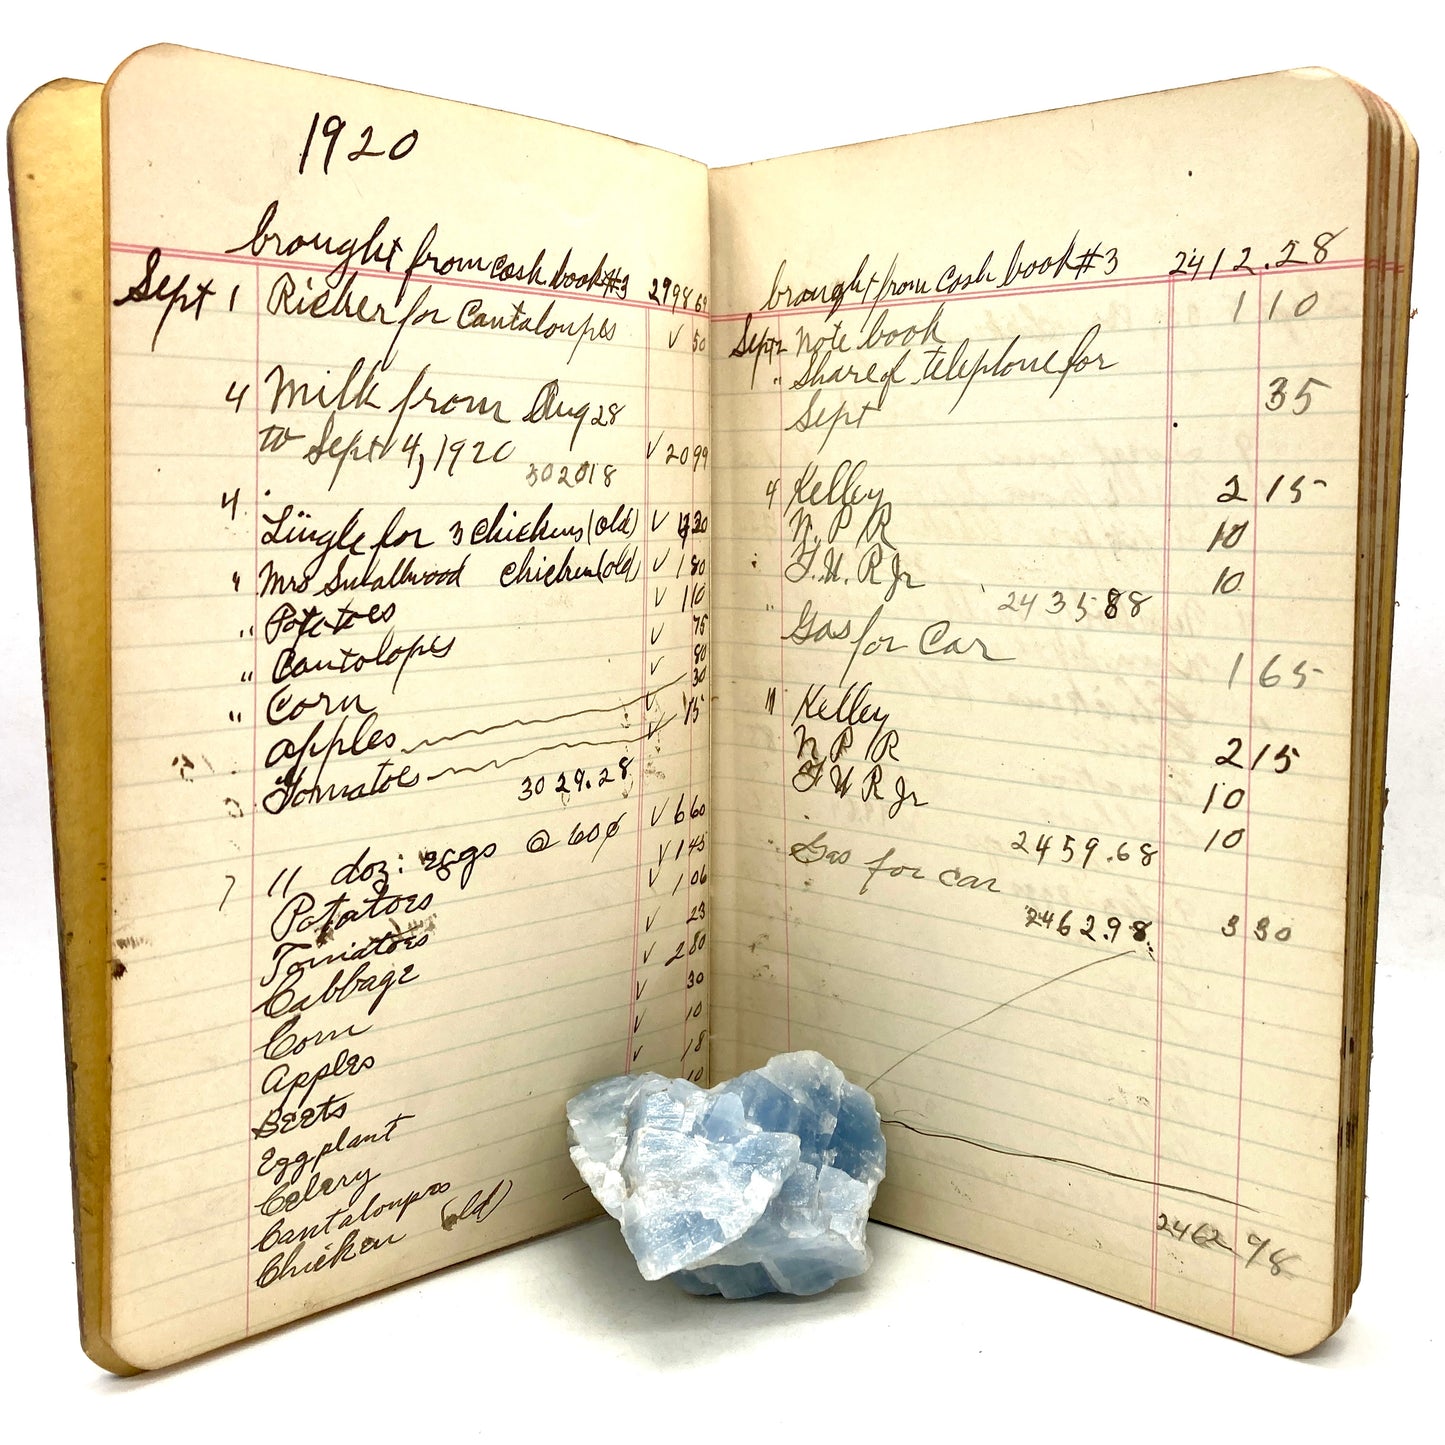 1920
brought from cash book #3 2998 69
Sept 1 Richer for Cantaloupes √ 50
4 Milk from Aug 28
to Sept 4, 1920 √ 20 99
302018
4 Lingle for 3 chickens (old) √ 4 20
" Mrs Smallwood chicken (old) √ 1 80
" Potatoes √ 1 10
" Cantolopes √ 75
" Corn √ 80
apples √ 30
Tomatoes √ 15
3029.28
7 11 doz: eggs @ 60¢ √ 6 60
Potatoes √ 1 45
Tomatoes √ 1 06
Cabbage √ 23
Corn √ 2 80
Apples √ 30
Beets √ 10
Eggplant √ 18
Celery 10
Cantaloupes
Chicken (old)
brought from cash book #3 2412.28
Sept 2 Note book 1 10
" Share of telephone for
Sept 35
4 Kelley 2 15
N. P. R 10
F. U. R Jr 10
2435 88
" Gas for Car 1 65
11 Kelley 2 15
N P R 10
F U R Jr 10
2459.68
Gas for car 3 30
2462.98
2462 98